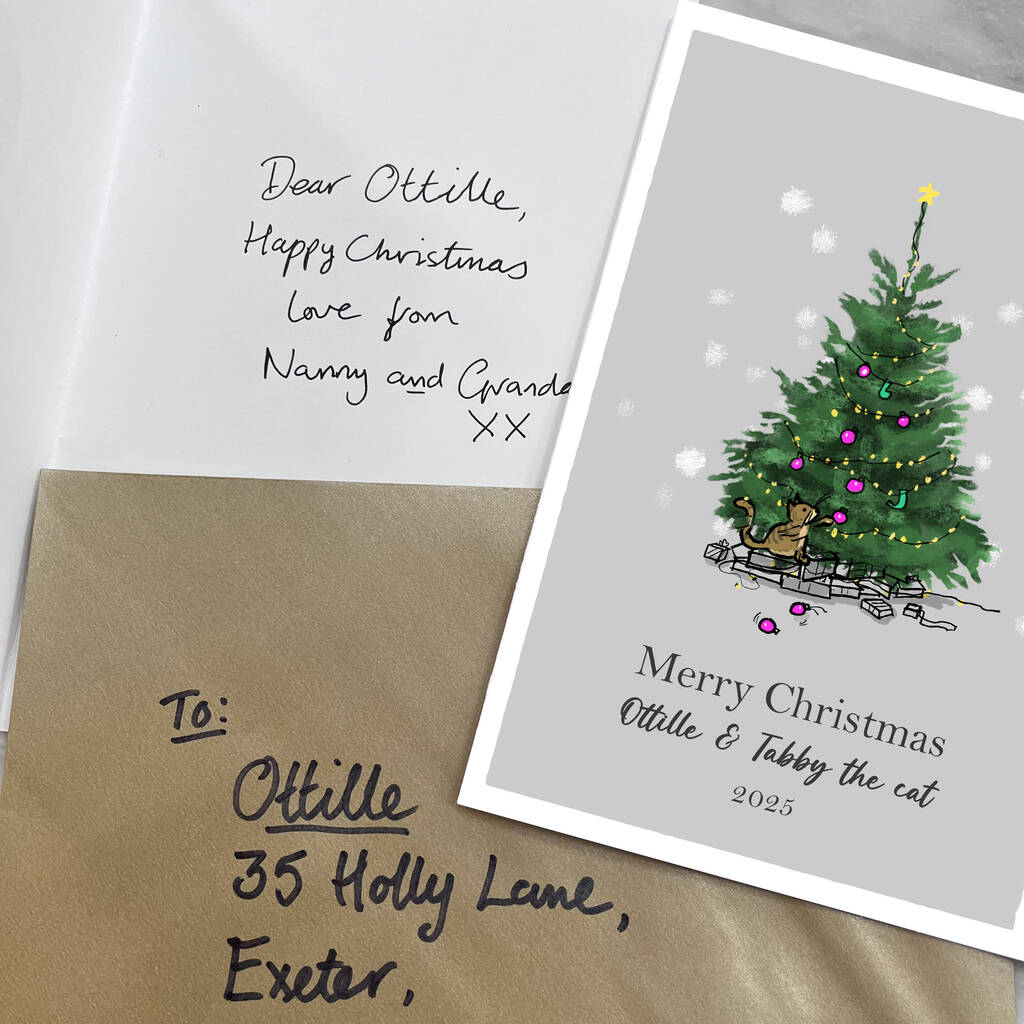 Dear Ottille,
Happy Christmas
love from
Nanny and Granda
XX
To:
Ottille
35 Holly Lane,
Exeter,
Merry Christmas
Ottille & Tabby the cat
2025